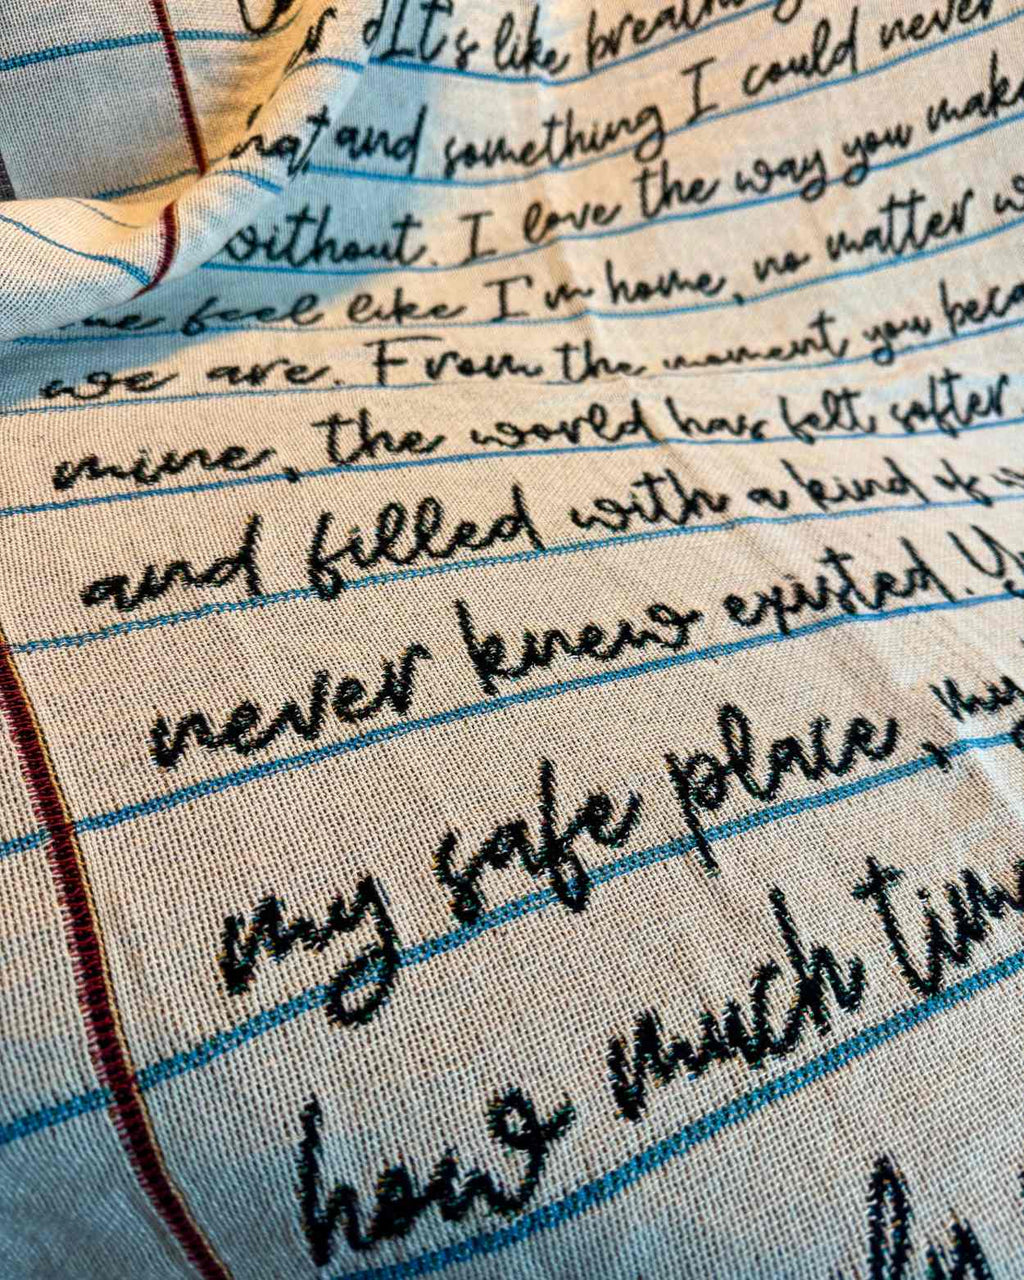 It's like breathing
and something I could never
without. I love the way you make
me feel like I'm home, no matter
we are. From the moment you
mine, the world has felt softer
and filled with a kind of
never knew existed.
my safe place, my
how much